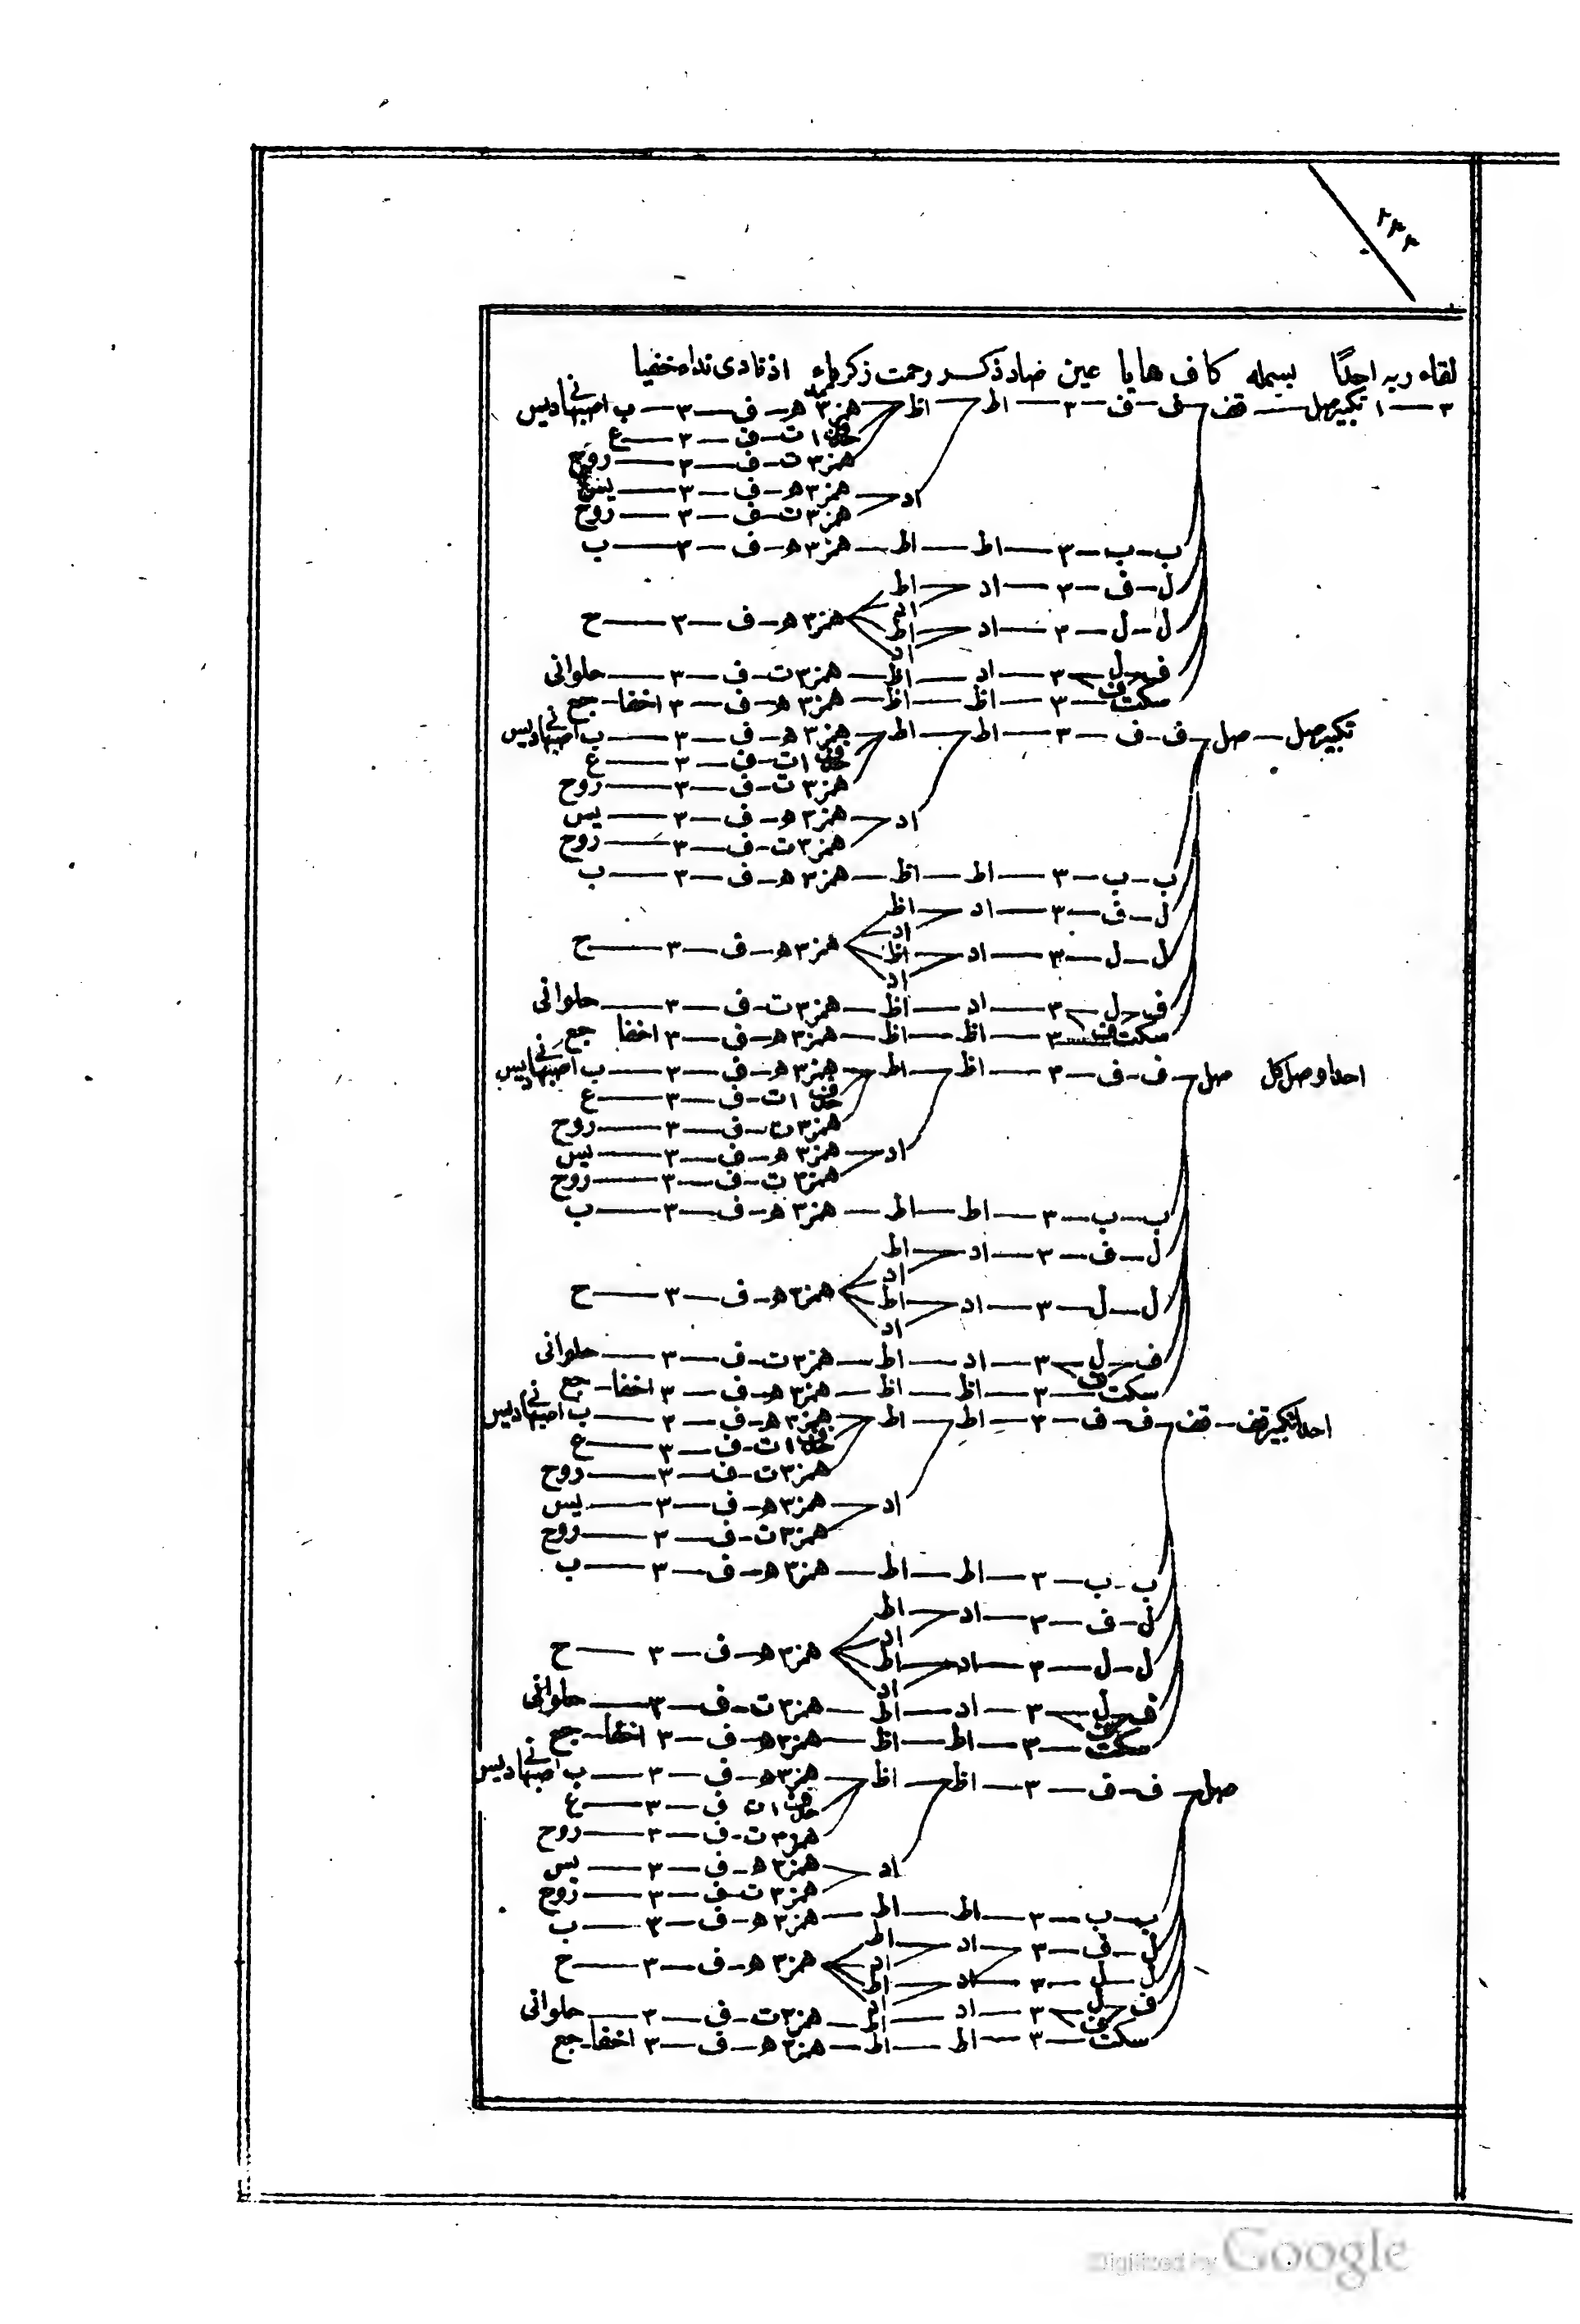 ٢٤٤
لقاء ربه احدًا بسمله كاف ها يا عين صاد ذكر رحمت زكرياء اذ نادى نداء خفيا
٣ — ١ تكبير صل — قف — ف — ف — ٣ — اط — اظ — همز ٣ هـ — ف — ٣ — ب اصبهاني يس
١ ت — ف — ٣ — ع
همز ٣ ت — ف — ٣ — روح
اد — همز ٣ هـ — ف — ٣ — يس
همز ٣ ت — ف — ٣ — روح
ب — ب — ٣ — اط — اط — همز ٣ هـ — ف — ٣ — ب
ل — ف — ٣ — اد — اط
اد — همز ٣ هـ — ف — ٣ — ح
ل — ل — ٣ — اد — اط
اد
ف — ل — ٣ — اد — اظ — همز ٣ ت — ف — ٣ — حلوانى
ف
سكت — ٣ — اظ — اظ — همز ٣ هـ — ف — ٣ اخفا — جع
تكبير صل — صل — ف — ف — ٣ — اط — اط — همز ٣ هـ — ف — ٣ — ب اصبهاني يس
١ ت — ف — ٣ — ع
همز ٣ ت — ف — ٣ — روح
اد — همز ٣ هـ — ف — ٣ — يس
همز ٣ ت — ف — ٣ — روح
ب — ب — ٣ — اط — اظ — همز ٣ هـ — ف — ٣ — ب
ل — ف — ٣ — اد — اظ
اد — همز ٣ هـ — ف — ٣ — ح
ل — ل — ٣ — اد — اظ
اد
ف — ل — ٣ — اد — اظ — همز ٣ ت — ف — ٣ — حلوانى
ف
سكت — ٣ — اظ — اظ — همز ٣ هـ — ف — ٣ اخفا جع
احدا وصل كل صل — ف — ف — ٣ — اظ — اط — همز ٣ هـ — ف — ٣ — ب اصبهاني يس
١ ت — ف — ٣ — ع
همز ٣ ت — ف — ٣ — روح
اد — همز ٣ هـ — ف — ٣ — يس
همز ٣ ت — ف — ٣ — روح
ب — ب — ٣ — اط — اط — همز ٣ هـ — ف — ٣ — ب
ل — ف — ٣ — اد — اط
اد — همز ٣ هـ — ف — ٣ — ح
ل — ل — ٣ — اد — اط
اد
ف — ل — ٣ — اد — اط — همز ٣ ت — ف — ٣ — حلوانى
ف
سكت — ٣ — اظ — اظ — همز ٣ هـ — ف — ٣ اخفا — جع
احدا تكبير قف — قف — ف — ف — ٣ — اط — اط — همز ٣ هـ — ف — ٣ — ب اصبهاني يس
١ ت — ف — ٣ — ع
همز ٣ ت — ف — ٣ — روح
اد — همز ٣ هـ — ف — ٣ — يس
همز ٣ ت — ف — ٣ — روح
ب — ب — ٣ — اط — اط — همز ٣ هـ — ف — ٣ — ب
ل — ف — ٣ — اد — اط
اد — همز ٣ هـ — ف — ٣ — ح
ل — ل — ٣ — اد — اط
اد
ف — ل — ٣ — اد — اط — همز ٣ ت — ف — ٣ — حلوانى
ف
سكت — ٣ — اط — اظ — همز ٣ هـ — ف — ٣ اخفا — جع
صل — ف — ف — ٣ — اظ — اظ — همز ٣ هـ — ف — ٣ — ب اصبهاني يس
١ ت ف — ٣ — ع
همز ٣ ت — ف — ٣ — روح
اد — همز ٣ هـ — ف — ٣ — يس
همز ٣ ت — ف — ٣ — روح
ب — ب — ٣ — اط — اط — همز ٣ هـ — ف — ٣ — ب
ل — ف — ٣ — اد — اط
اد — همز ٣ هـ — ف — ٣ — ح
ل — ل — ٣ — اد — اط
اد
ف — ل — ٣ — اد — اط — همز ٣ ت — ف — ٣ — حلوانى
ف
سكت — ٣ — اط — اط — همز ٣ هـ — ف — ٣ اخفا — جع
Digitized by Google